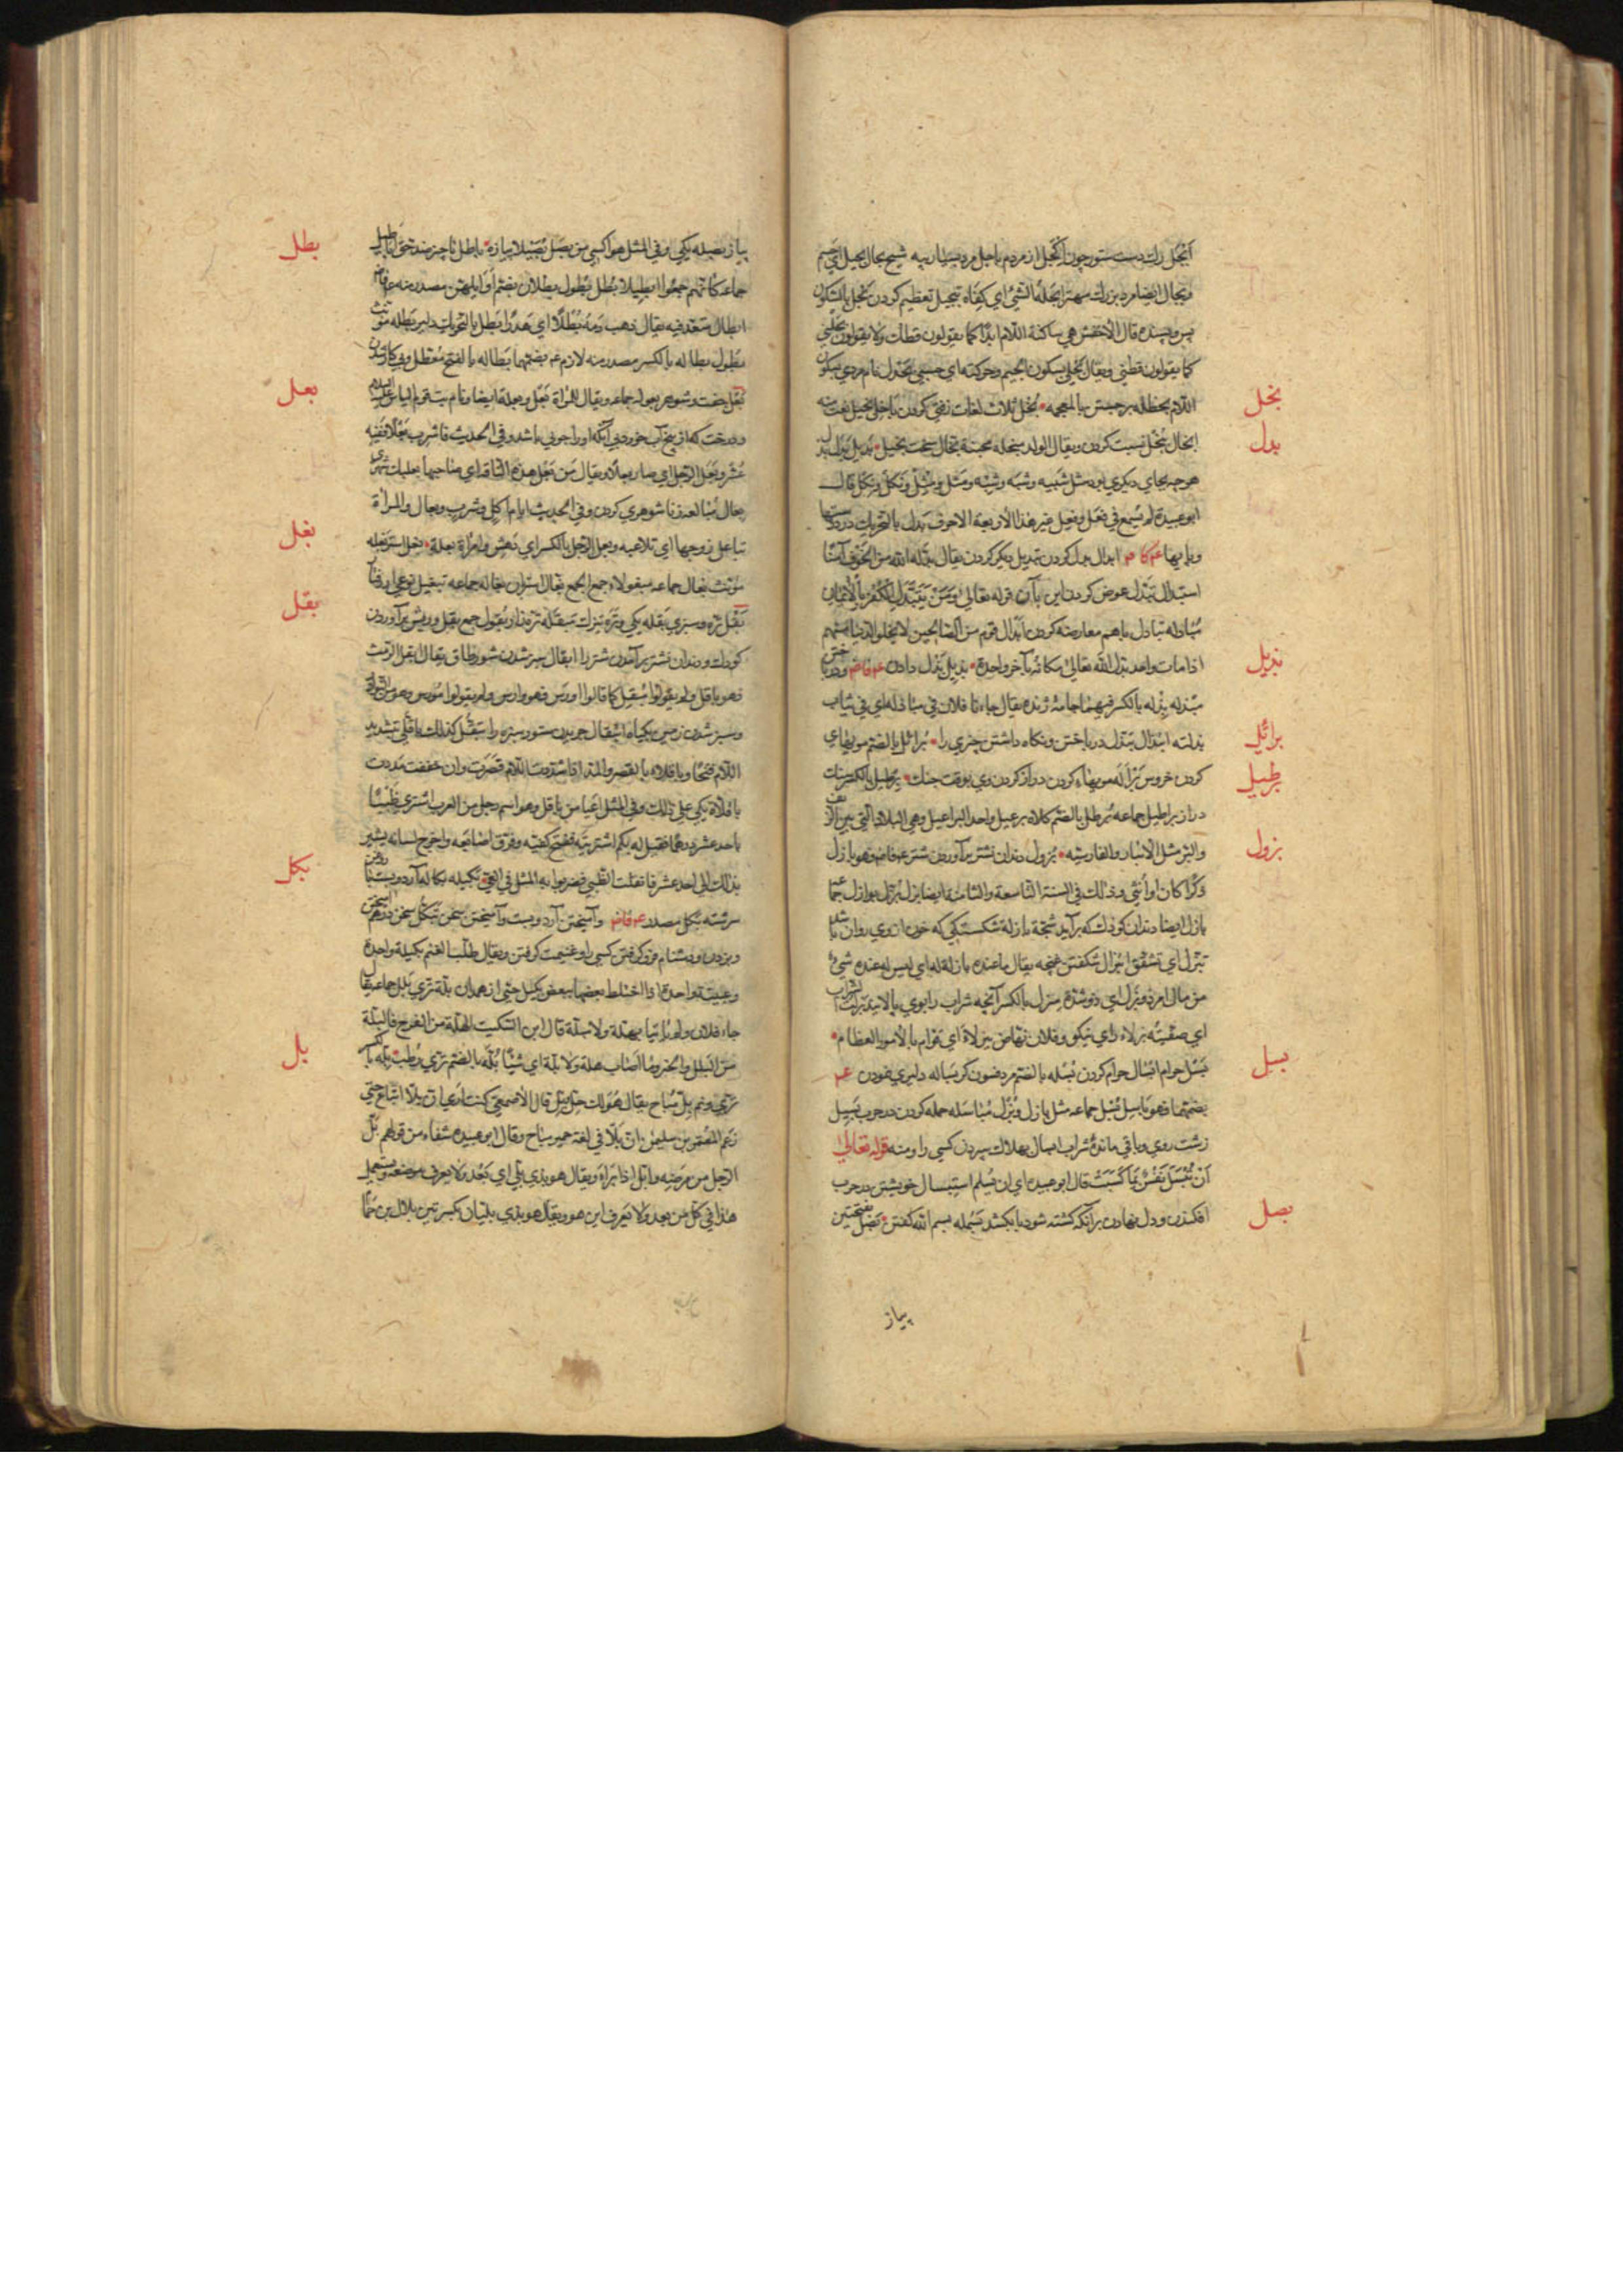 ابجل رك دست ستور چون اكحل از مردم باجل مرد بسيار پيه شيخ بجال بجيل اي جسم
و بجال ايضا مرد بزرك مهتر ابجله الشيء اي كفاه تبجيل تعظيم كردن بجل بالسكون
بس و بسنده قال الاخفش هي ساكنة اللام ابدا كما يقولون قطك ولا يقولون بجلني
كما يقولون قطني ويقال بجلي بسكون الجيم وحركته اي حسبي بحدل نام مردي بسكون
بخل
اللام بحظله برجستن بالمعجمه بخل ثلاث لغات زفتي كردن باخل بخيل نعت منه
بدل
ابخال بخل نسبت كردن ويقال الولد مبخله مجبنة بخال سخت بخيل بديل بدل
هر چه بجاي ديكري بود مثل شبيه وشبه وشبه ومثل ومثل ونكل ونكل قال
ابو عبيدة لم يسمع في فعل وفعل غير هذا الاربعة الاحرف بدل بالتحريك درد دستها
وپايها ابدال بدل كردن تبديل ديكر كردن يقال بدله الله من الخوف آمنا
استبدال تبدل عوض كردن اين بآن قوله تعالى ومن يتبدل الكفر بالايمان
مبادله تبادل باهم معارضه كردن ابدال قوم من الصالحين لا يخلو الدنيا منهم
بذيل
اذا مات واحد بدل الله تعالى مكانه بآخر واحدة بذيل بذل دادن
مبذله بذله بالكسر فيهما جامه ژنده يقال جاءنا فلان في مباذله اي في ثياب
برائل
بذلته ابتذال تبذل در باختن ونكاه داشتن چيزي را برائل بالضم مويهاي
برطيل
كردن خروس برأله مويهاء كردن دراز كردن وي بوقت جنك برطيل بالكسر سنك
دراز براطيل جماعه برطل بالضم كلاه برعيل واحد البراعيل وهي البلاد التي بين الريف
بزول
والبر مثل الانبار والقادسيه بزول دندان نشتر برآوردن شتر وهو بازل
ذكرا كان او انثى وذلك في السنة التاسعة والثامنة ايضا بزل بزل بوازل جماعة
بازل ايضا دندان كودك كه برآيد شجة بازلة شكستكي كه خون از وي روان باشد
تبزل اي تشقق انبزال شكفتن غنچه يقال ما عنده بازلة له اي ليس له عنده شيء
من مال امر ذو بزل اي ذو شدة مبزل بالكسر آنچه شراب را بوي پالايند بزلت الشراب
اي صفيته بزلاء راي نيكو وفلان نهاض ببزلاء اي قوام بالامور العظام
بسل
بسل حرام ابسال حرام كردن بسله بالضم مزد فسون كر بساله دليري نمودن
بضمتهما فهو باسل بسل جماعه مثل بازل وبزل مباسله حمله كردن در حرب بسيل
زشت روي وباقي مانده شراب ابسال بهلاك سپردن كسي را ومنه قوله تعالى
ان تبسل نفس بما كسبت قال ابو عبيده اي ان تسلم استبسال خويشتن در حرب
بصل
افكندن و دل نهادن برآنكه كشته شود يا بكشد بسمله بسم الله كفتن بصل بفتحتين
پياز
بطل
پياز بصله يكي وفي المثل هو اكسي من بصل تبصيلا پيازه باطل ناچيز ضد حق اباطيل
جماعه كانهم جمعوا ابطيلا بطل بطول بطلان بضم اوائلهن مصدر منه
ابطال متعد فيه يقال ذهب دمه بطلا اي هدرا بطل بالتحريك دلير بطله مونث
بطول بطاله بالكسر مصدر منه لازم بضمهما بطاله بالفتح معطل وبيكار شدن
بعل
بعل جفت وشوهر بعوله جماعه ويقال للمراة بعل وبعلة ايضا ونام بت قوم الياس عليه السلام
ودرخت كه از بيخ آب خورد بي آنكه او را جوبي باشد وفي الحديث ما شرب بعلا ففيه
عشر وبعل الرجل اي صار بعلا ويقال من بعل هذه الناقة اي صاحبها بعلبك شهري
بعال مباعله زناشوهري كردن وفي الحديث ايام اكل وشرب وبعال والمراة
بغل
تباعل زوجها اي تلاعبه وبعل الرجل بالكسر اي دهش وامراة بعلة بغل استر بغله
مونث بغال جماعه مبغولاء جمع الجمع بغال استربان بغاله جماعه تبغيل نوعي از رفتار
بقل
بقل تره وسبزي بقله يكي وتره بزرك مبقله تره زار بقول جمع بقل وريش برآوردن
كودك ودندان نشتر برآمدن شتر را ابقال سبز شدن شوره طاق يقال ابقل الرمث
فهو باقل ولم يقولوا مبقل كما قالوا اورس فهو وارس ولم يقولوا مورس وهو من النوادر
وسبز شدن زمين بكياه ابتقال چريدن ستور سبزه را تبقل كذلك باقلى بتشديد
اللام فتحا وباقلاء بالقصر والمد اذا شددت اللام قصرت وان خففت مددت
باقلاة يكي على ذلك وفي المثل اعيا من باقل وهو اسم رجل من العرب اشترى ظبيا
باحد عشر درهما فقيل له بكم اشتريته ففتح كفيه وفرق اصابعه واخرج لسانه يشير
بكل
بذلك الى احد عشر فانفلت الظبي فضربوا به المثل في العي بكيله بكاله آرد وپست با روغن
سرشته بكل مصدر وآميختن آرد وپست وآميختن سخن تبكل سخن درهم آميختن
وبزدن ودشنام فرو كرفتن كسي را وغنيمت كرفتن ويقال ظلت الغنم بكيلة واحدة
وعبيثة واحدة اذا اختلط بعضها ببعض بكيل حيي از همدان بلة تري بلل جماعه يقال
جاء فلان ولم ياتنا بهلة ولا ببلة قال ابن السكيت الهلة من الفرح والبلة
بل
من البلل والخير وما اصاب هلة ولا بلة اي شيئا بله بالضم تري رطب بله بالكسر
تري ونم بل مباح يقال هو لك حل وبل قال الاصمعي كنت ارى ان بلا اتباع حتى
زعم المعتمر بن سليمن ان بلا في لغة حمير مباح وقال ابو عبيده شفاء من قولهم بل
الرجل من مرضه وابل اذا برأ ويقال هو بذي بلي اي بعد ولا يعرف موضعه ويستعمل
هذا في كل من بعد ولا يعرف اين هو ويقال هو بذي بليان بكسرتين بلال بن حمامة